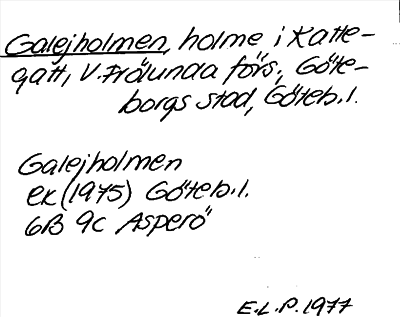 Galejholmen, holme i Katte-
gatt, V. Frölunda förs., Göte-
borgs stad, Göteb. l.
Galejholmen
ek (1975) Göteb. l.
6B 9c Asperö
E.L.P. 1977